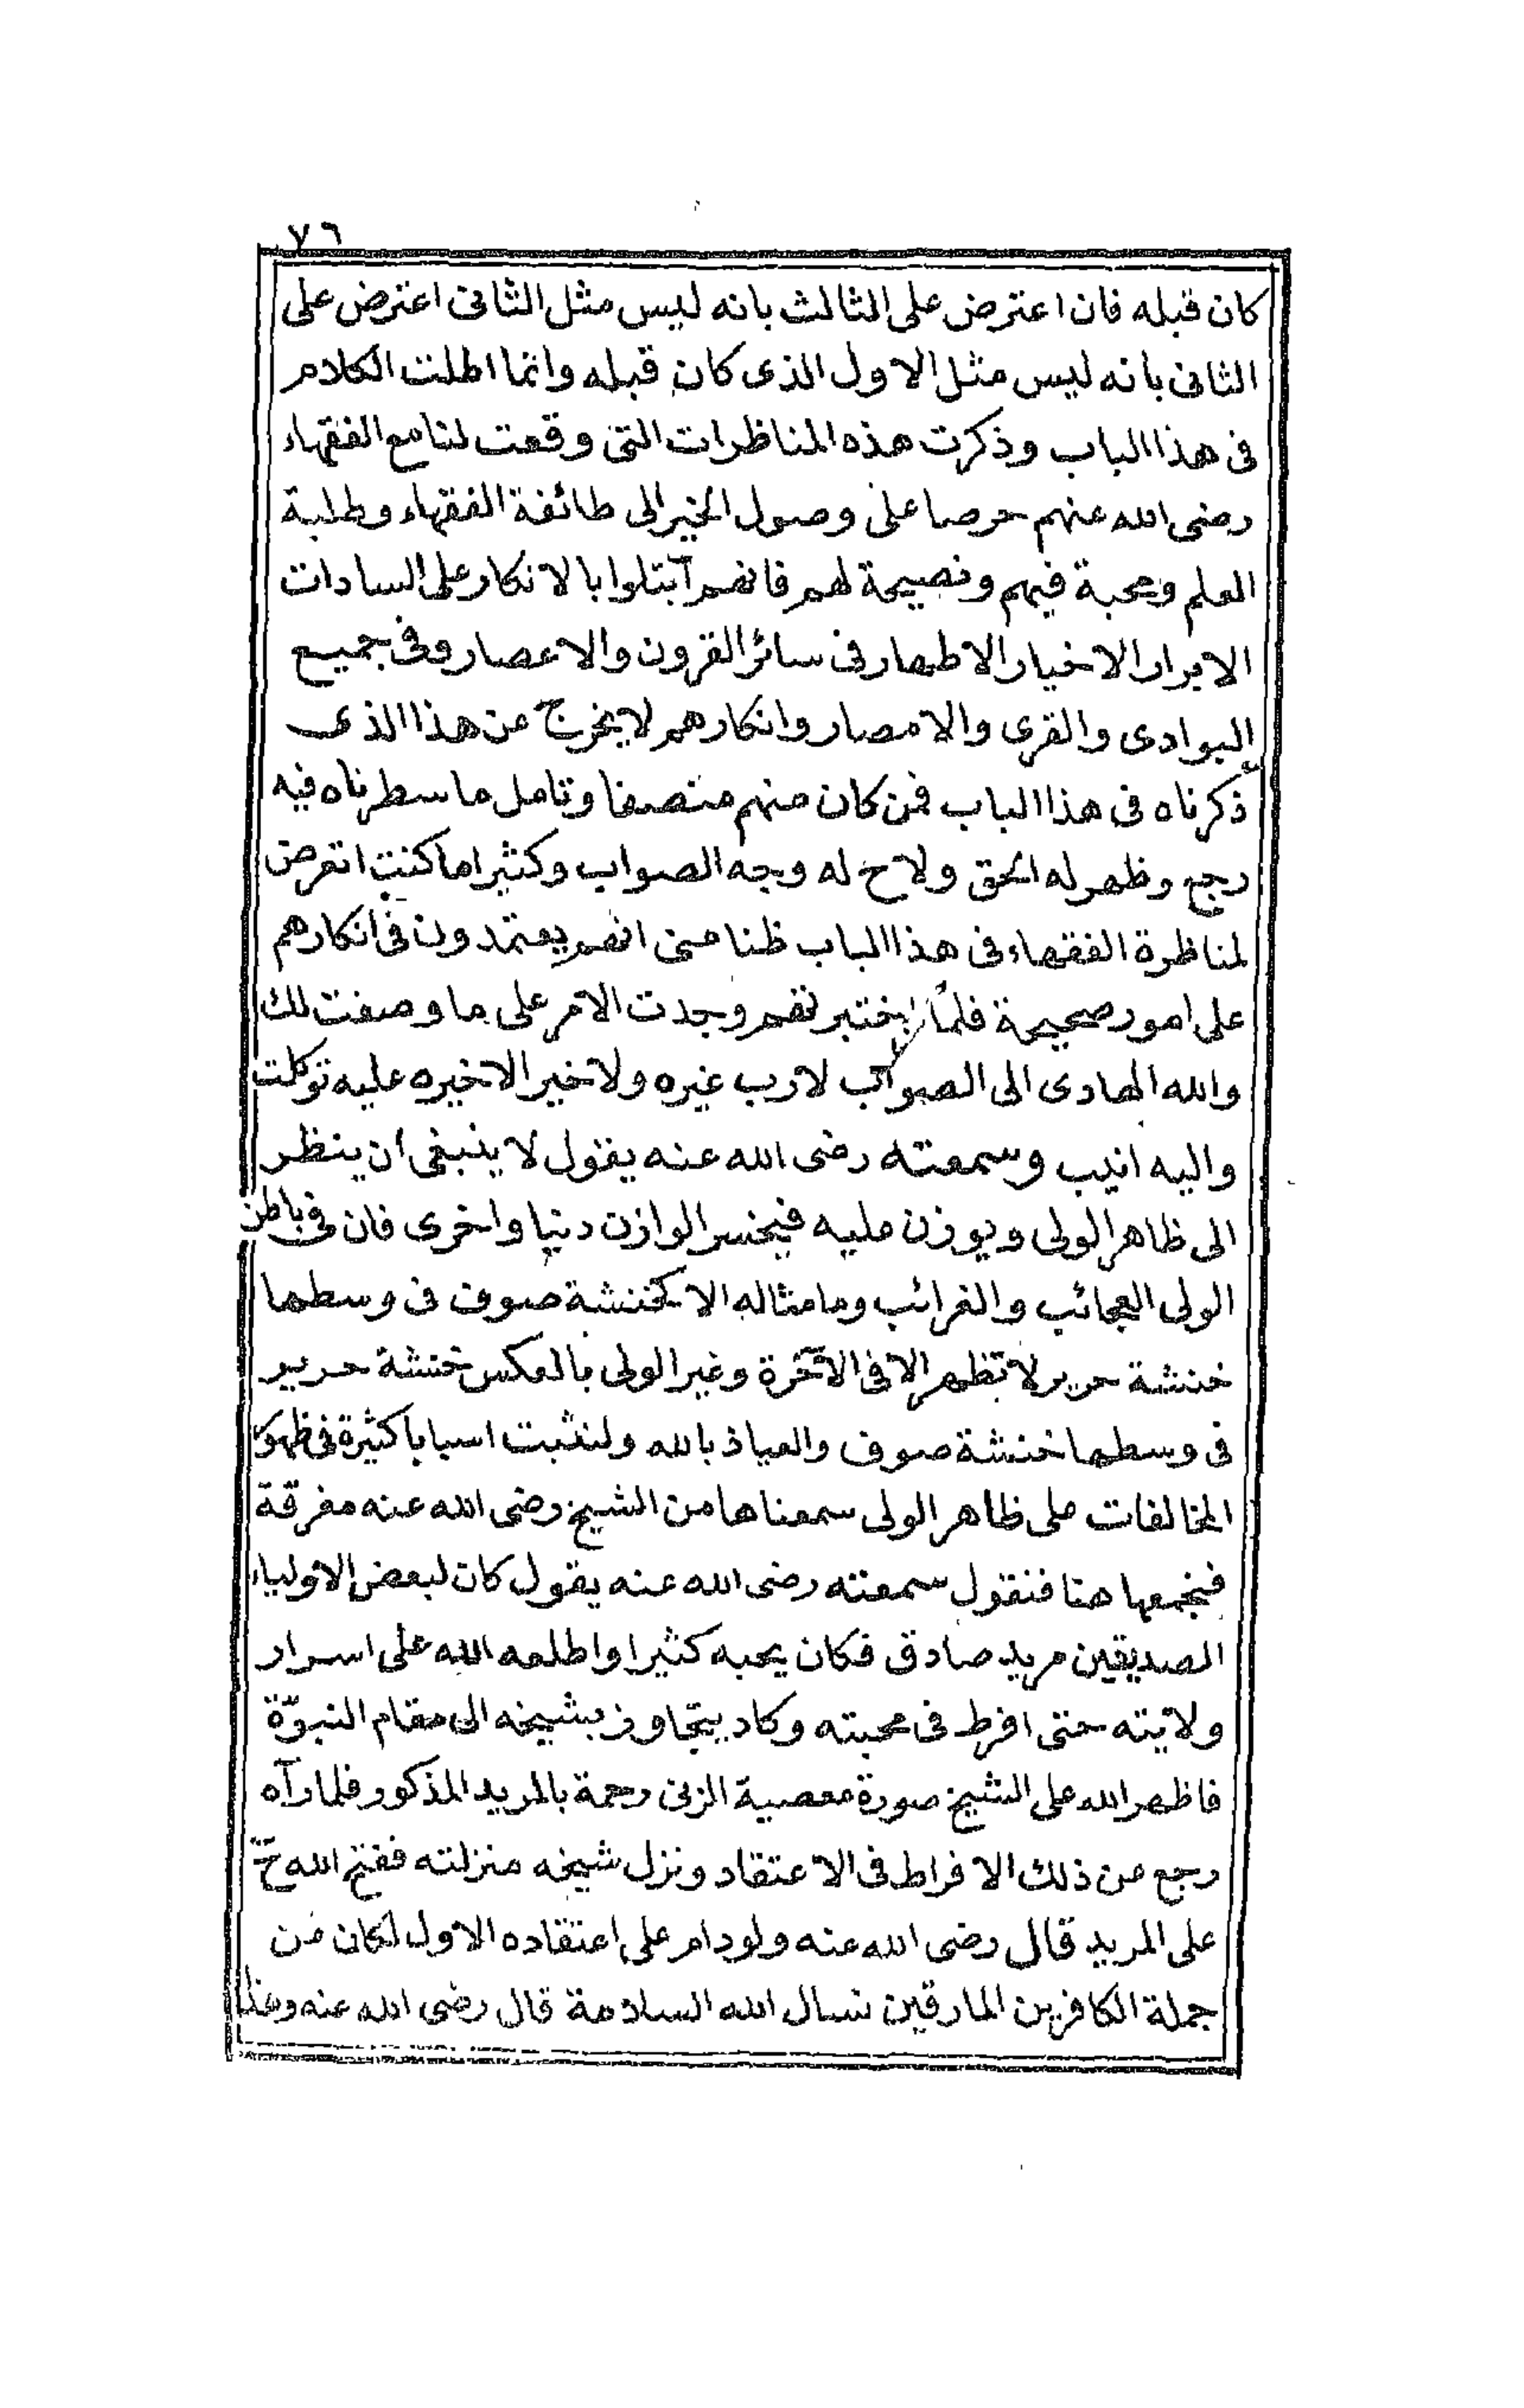 ٧٦
كان قبله فان اعترض على الثالث بانه ليس مثل الثانى اعترض على
الثانى بانه ليس مثل الاول الذى كان قبله وانما اطلت الكلام
فى هذا الباب وذكرت هذه المناظرات التى وقعت لنا مع الفقهاء
رضى الله عنهم حرصا على وصول الخير الى طائفة الفقهاء وطلبة
العلم ومحبة فيهم ونصيحة لهم فانهم ابتلوا بالانكار على السادات
الابرار الاخيار الاطهار فى سائر القرون والاعصار وفى جميع
البوادى والقرى والامصار وانكارهم لا يخرج عن هذا الذى
ذكرناه فى هذا الباب فمن كان منهم منصفا وتامل ما سطرناه فيه
رجع وظهر له الحق ولاح له وجه الصواب وكثيرا ما كنت اتعرض
لمناظرة الفقهاء فى هذا الباب ظنا منى انهم يعتمدون فى انكارهم
على امور صحيحة فلما اختبرتهم وجدت الامر على ما وصفت لك
والله الهادى الى الصواب لا رب غيره ولا خير الا خيره عليه توكلت
واليه انيب وسمعته رضى الله عنه يقول لا ينبغى ان ينظر
الى ظاهر الولى ويوزن عليه فيخسر الوازن دنيا واخرى فان فى باطن
الولى العجائب والغرائب وما مثاله الا كخنشة صوف فى وسطها
خنشة حرير لا تظهر الا فى الآخرة وغير الولى بالعكس خنشة حرير
فى وسطها خنشة صوف والعياذ بالله ولنثبت اسبابا كثيرة فى ظهور
المخالفات على ظاهر الولى سمعناها من الشيخ رضى الله عنه مفرقة
فنجمعها هنا فنقول سمعته رضى الله عنه يقول كان لبعض الاولياء
الصديقين مريد صادق فكان يحبه كثيرا واطلعه الله على اسرار
ولايته حتى افرط فى محبته وكاد يتجاوز بشيخه الى مقام النبوّة
فاظهر الله على الشيخ صورة معصية الزنى رحمة بالمريد المذكور فلما رآه
رجع عن ذلك الافراط فى الاعتقاد ونزل شيخه منزلته ففتح الله ح
على المريد قال رضى الله عنه ولو دام على اعتقاده الاول لكان من
جملة الكافرين المارقين نسال الله السلامة قال رضى الله عنه وهذا